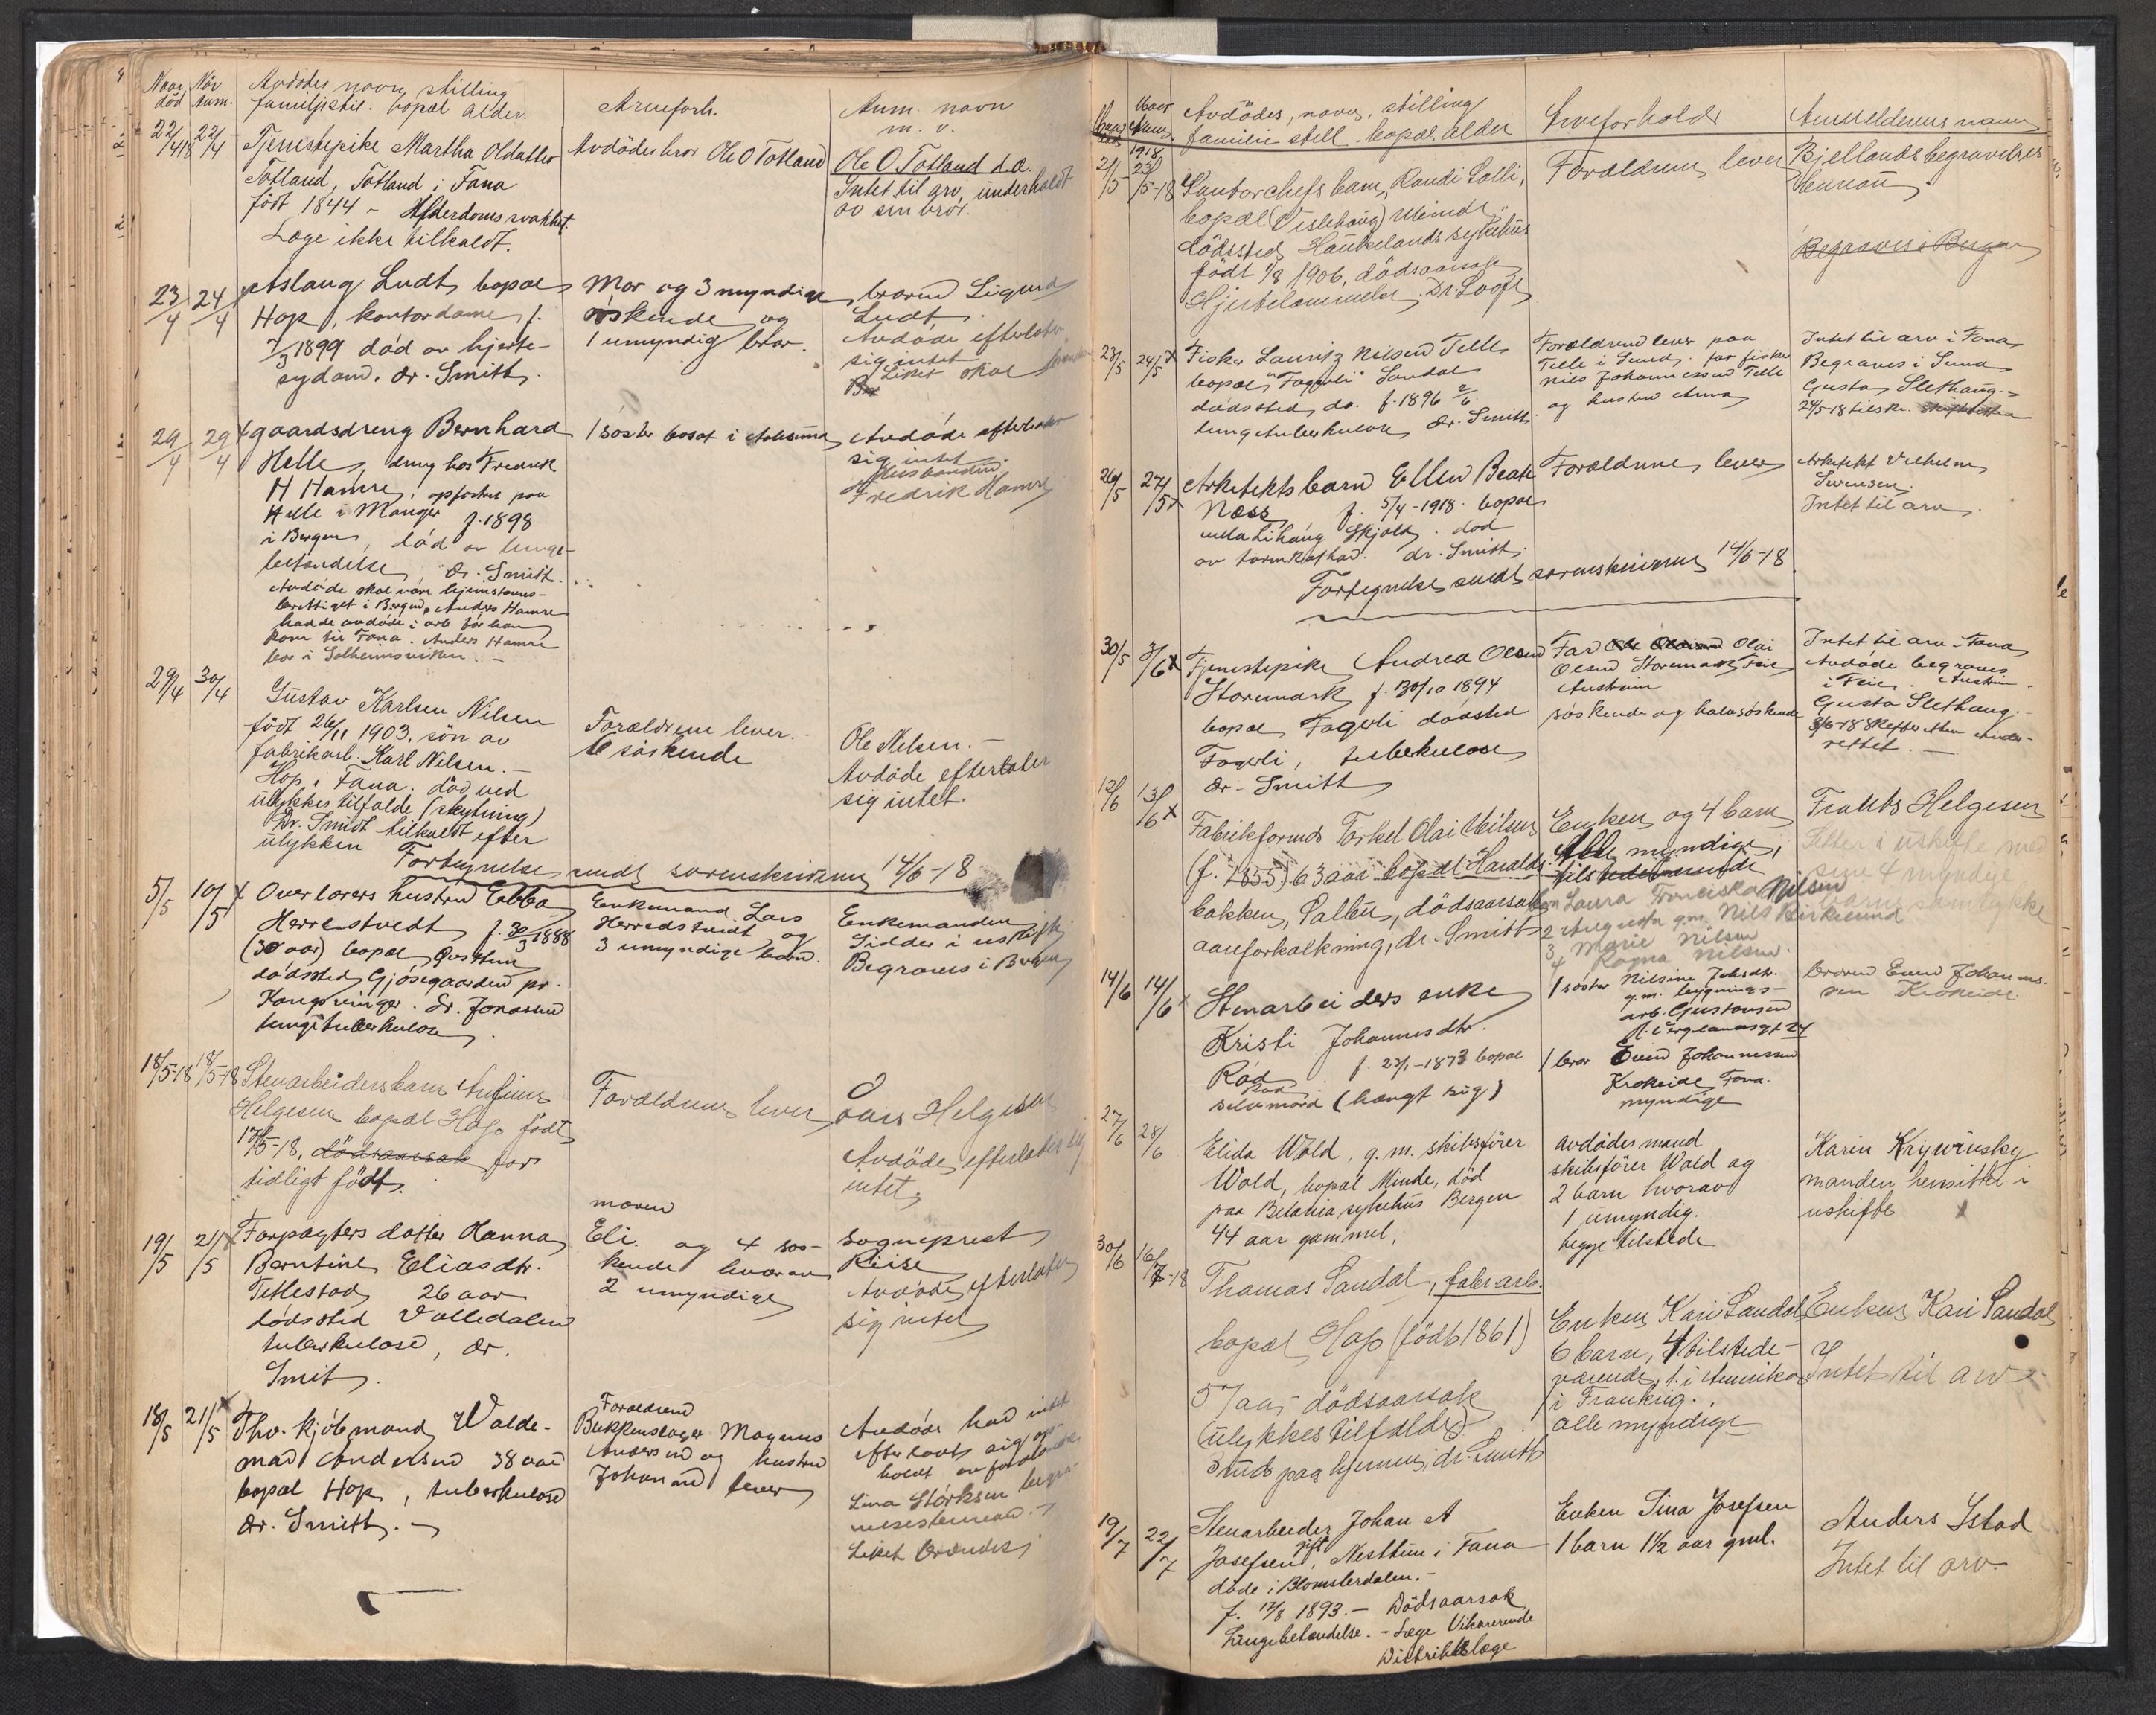 Naar død
Når Anm.
Avdødes navn, stilling
familjestil. bopæl alder.
Arveforh.
Anm. navn
m. v.
22/4 18
22/4
Tjenestepike Martha Oldatter
Totland, Totland i Fana
født 1844 - Alderdomssvakhet.
Læge ikke tilkaldt.
Avdødes bror Ole O Totland
Ole O. Totland s.d.
Intet til arv, underholdt
av sin bror.
23/4
24/4
Aslaug Ludt, bopæl
Hop, kontordame, f.
7/3 1899 død av hjerte-
sygdom. dr. Smitt.
Mor og 3 myndige
søskende og
1 umyndig bror.
broren Sigurd
Ludt.
Avdøde efterlater
sig intet
Liket skal
29/4
29/4
gaardsdreng Bernhard
Helle, dreng hos Fredrik
H Hamre, opfostret paa
Helle i Manger f. 1898
i Bergen, død av lunge-
betændelse dr. Smitt.
Avdøde skal være hjemstavns-
berettiget i Bergen, Anders Hamre
hadde avdøde i arb før han
kom til Fana. Anders Hamre
bor i Solheimsviken. -
1 søster bosat i Aalesund
Avdøde efterlater
sig intet.
Husbonden
Fredrik Hamre
29/4
30/4
Gustav Karlsen Nilsen
født 26/11 1903. søn av
fabrikarb. Karl Nilsen. -
Hop i Fana. død ved
ulykkestilfælde (skytning)
Dr. Smidt tilkaldt efter
ulykken
Forældrene lever. -
6 søskende
Ole Nilsen. -
Avdøde efterlater
sig intet.
Fortegnelse sendt sorenskriveren 14/6-18
5/5
10/5
Overlærers hustru Ebba
Herrestvedt f. 30/3 1888
(30 aar) bopæl Nesttun
dødssted Gjøsegaarden pr.
Kongsvinger. Dr. Jonassen
lungetuberkulose.
Enkemand Lars
Herredstvedt og
3 umyndige barn.
Enkemanden
Sidder i uskifte
Begraves i Bergen
18/5-18
18/5-18
Stenarbeidersbarn
Helgesen bopæl Hop født
17/5-18, dødsaarsak for
tidligt født.
Forældrene lever
Lars Helgesen
Avdøde efterlater sig
intet.
19/5
21/5
Forpagters datter Hanna
Berntine Eliasdtr.
Tetlestad 26 aar
dødssted Valledalen
tuberkulose, dr.
Smit.
moren
Eli. og 4 søs-
kende hvorav
2 umyndige
sogneprest
Riise
Avdøde efterlater
sig intet
18/5
21/5
Fhv. kjøbmand Walde-
mar Andersen 38 aar
bopæl Hop, tuberkulose
dr. Smitt. -
Forældrene
Bukkenslager Magnus
Andersen og hustru
Johanne lever
Avdøde har intet
efterlatt sig op-
holdt av forældrene
Lina Størksen begra-
velsesbureau. -
Liket brændes
Naar død
Naar Anm.
Avdødes, navn, stilling
familie still. bopæl. alder
Arveforholds
Anmelderens navn
21/5
1918
23/5-18
Kontorchefs barn, Randi Lolli,
bopæl (Vislehaug) Minde
dødssted Haukelands sykehus
født 1/8 1906, dødsaarsak
Hjertelammelse. Dr. Looft
Forældrene lever
Bjellands begravelses
bureau
Begraves i Bergen
23/5
24/5
Fisker Lauritz Nilsen Telle
bopæl, "Fagerli" Sandal
dødssted, do. f. 1896 2/6.
lungetuberkulose, dr. Smitt.
Forældrene lever paa
Telle i Sund. far fisker
Nils Johannessen Telle
og hustru Anna
Intet til arv i Fana
Begraves i Sund
Gusta Slethaug. -
24/5-18 tilskr.
26/5
27/5
Arkitekts barn Ellen Beate
Næss f. 5/4-1918. bopæl
villa Lihaug Skjold. død
av tarmkatharr. dr. Smitt.
Forældrene lever
Arkitekt Vilhelm
Sørensen.
Intet til arv.
Fortegnelse sendt sorenskriveren 14/6-18.
30/5
3/6
Tjenestepike Andrea Olsen
Storemark f. 30/10 1894
bopæl Fagerli dødsted
Fagerli, tuberkulose
dr. Smitt
Far Olai
Olsen Storemark, Feie
Austrim
søskende og halvsøskende
Intet til arv i Fana
Avdøde begraves
i Feie, Austrim.
Gusta Slethaug. -
3/6-18 skifteretten under-
rettet. -
12/6
13/6
Fabrikformd Torkel Olai Nilsen
(f. 1855) 63 aar bopæl Haralds-
bakken, Pallen, dødsaarsak
aareforkalkning, dr. Smitt
Enken og 4 barn
Alle myndige,
tilstedeværende
Laura Franciska Nilsen
2 Augusta g.m. Nils Birkelund
3 Marie Nilsen
4 Ragna Nilsen.
Frants Helgesen
Sitter i uskifte med
sine 4 myndige
barns samtykke
14/6
14/6
Stenarbeiders enke
Kristi Johannesdtr.
Rød f. 23/1-1873 bopæl
Rød
selvmord (hængt sig)
1 søster Nilsine Johsdtr.
g.m. bygnings-
arb. Gustavsen
1 bror Eivind Johannessen
Krokeide, Fana.
myndige
broren Eivind Johannes-
sen Krokeide.
27/6
28/6
Elida Wold, g.m. skibsfører
Wold, bopæl Minde, død
paa Betania sykehus Bergen
44 aar gammel.
avdødes mand
skibsfører Wold og
2 barn hvorav
1 umyndig.
begge tilstede
Karin Krywinsky
manden hensitter i
uskifte
30/6
16/7-18
Thomas Sandal, fabrarb.
bopæl Hop (født 1861)
57 aar dødsaarsak
(ulykkestilfælde)
Stød paa hjernen, dr. Smith
Enken Kari Sandal
6 barn, 4 tilstede-
værende, 1. i Amerika
1 i Frankrig.
alle myndige
Enken Kari Sandal
Intet til arv
19/7
22/7
Stenarbeider Johan A
Josefsen, gift, Nesttun i Fana
døde i Blomsterdalen. -
f. 12/8 1893. - Dødsaarsak
Lungebetændelse. - Læge Vikarierende
Distriktslæge
Enken Sina Josefsen
1 barn 1½ aar gml.
Anders Ystad
Intet til arv.